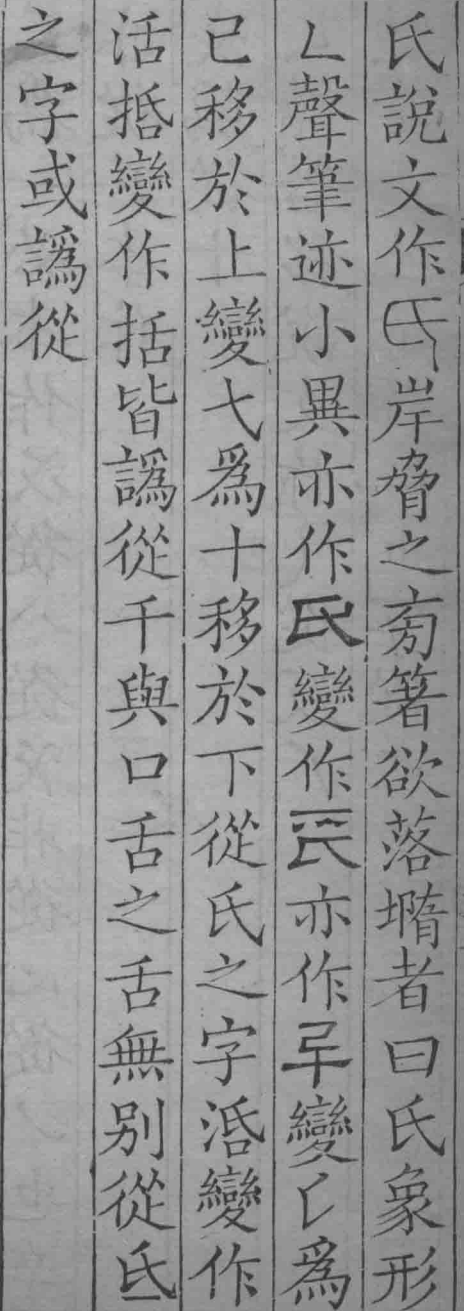 氏說文作氏岸脅之㫄箸欲落墮者曰氏象形
乀聲筆迹小異亦作氏變作亦作變㇄爲
己移於上變七爲十移於下從氏之字湉變作
活𢬸變作括皆譌從千與口舌之舌無别從氐
之字或譌從